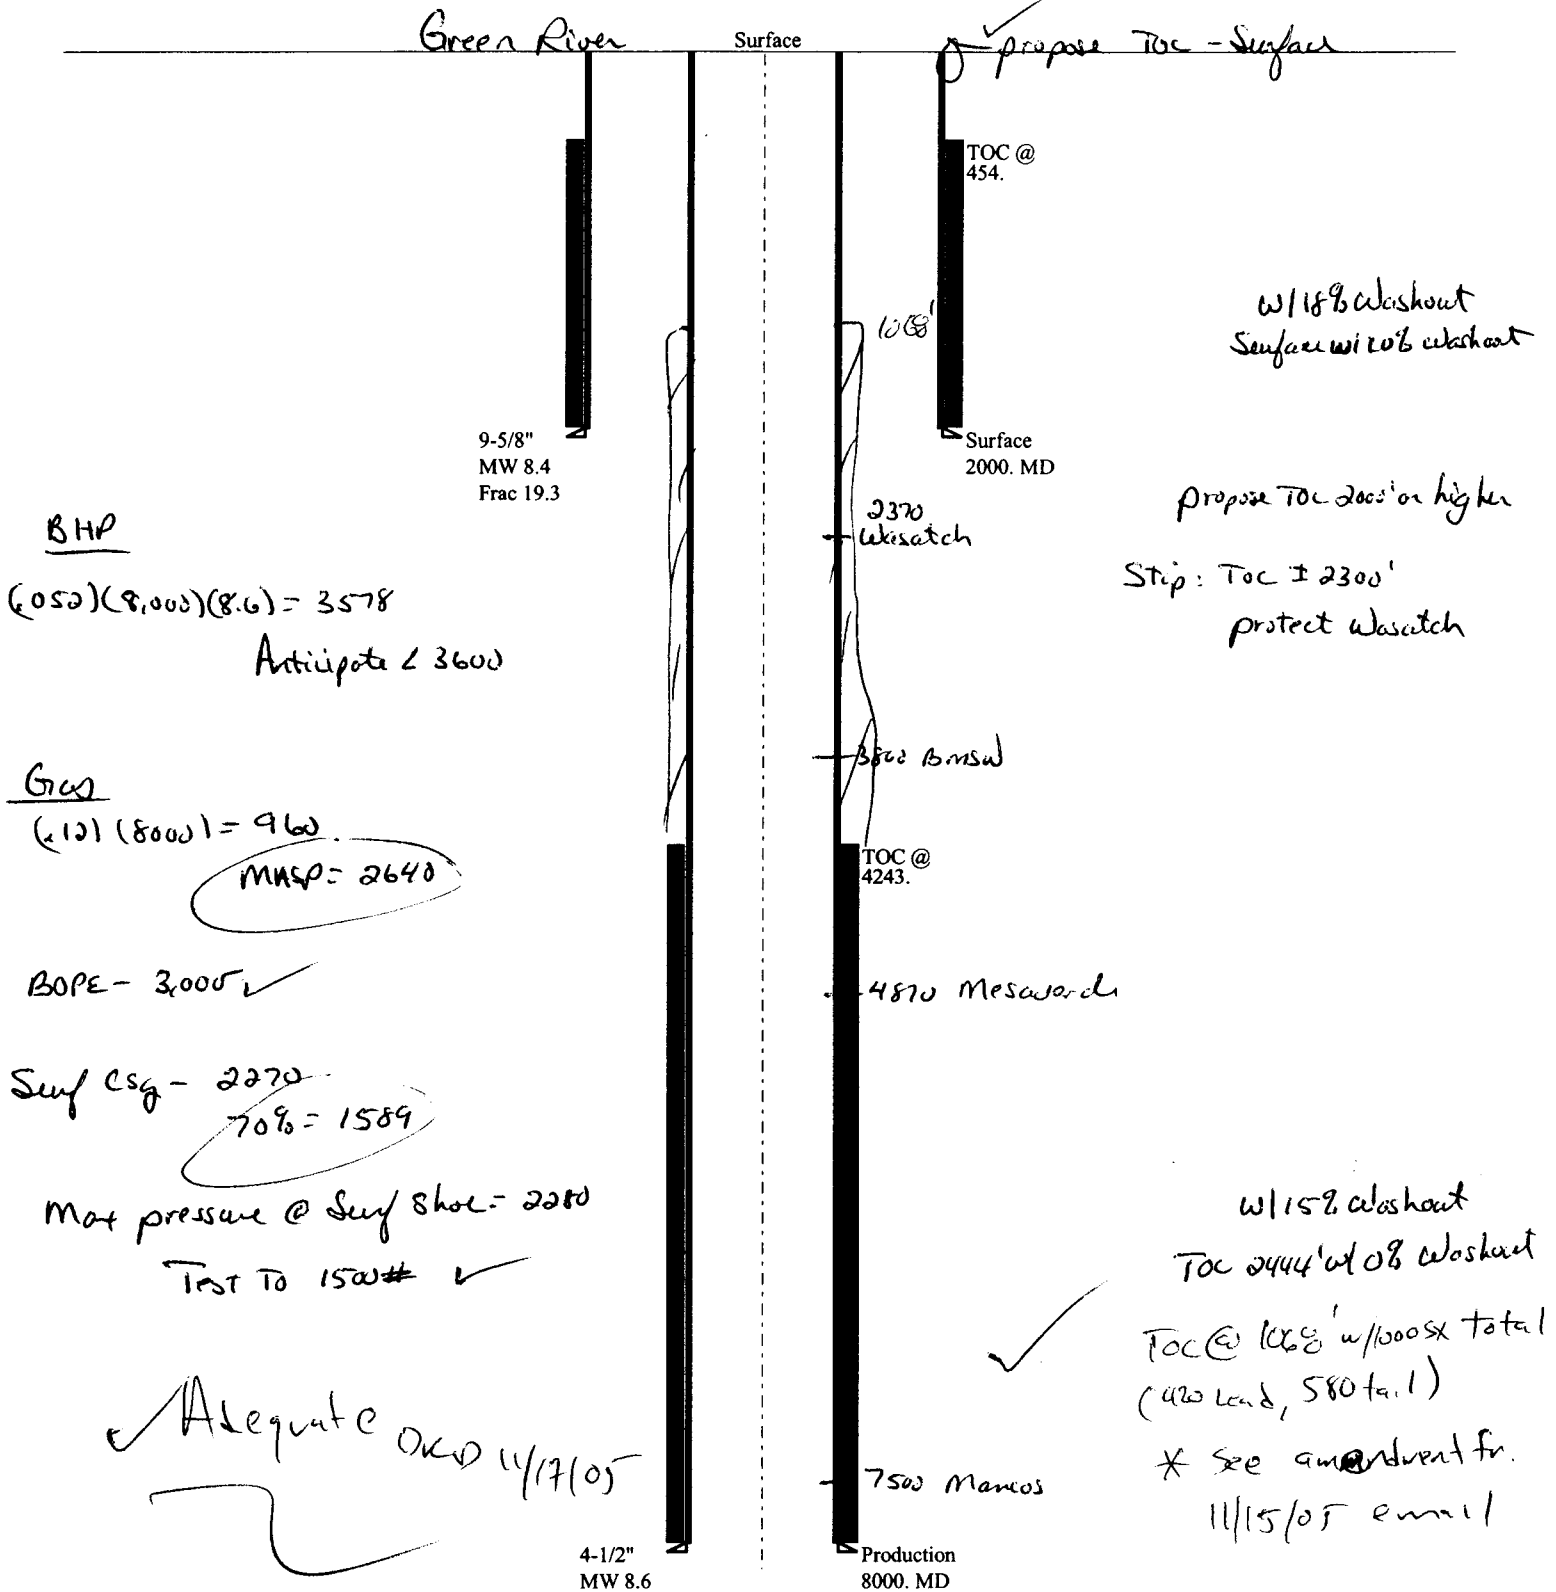 Green River
Surface
propose TOC - Surface
TOC @
454.
1068'
w/18% Washout
Surface w/ 10% washout
9-5/8"
MW 8.4
Frac 19.3
Surface
2000. MD
2370
Wasatch
propose TOC 2000' or higher
Stip: TOC ± 2300'
protect Wasatch
BHP
(.052)(8,000)(8.6) = 3578
Anticipate < 3600
3800 BMSW
Gas
(.12)(8000) = 960
MASP = 2640
TOC @
4243.
BOPE - 3,000 ✓
4870 Mesaverde
Surf csg - 2270
70% = 1589
Max pressure @ Surf Shoe = 2280
Test To 1500# ✓
w/15% Washout
TOC 2444' w/ 0% Washout
TOC @ 1068' w/1000sx total
(420 Lead, 580 tail)
* See amendment fr.
11/15/05 email
✓ Adequate DKD 11/17/05
7500 Mancos
4-1/2"
MW 8.6
Production
8000. MD